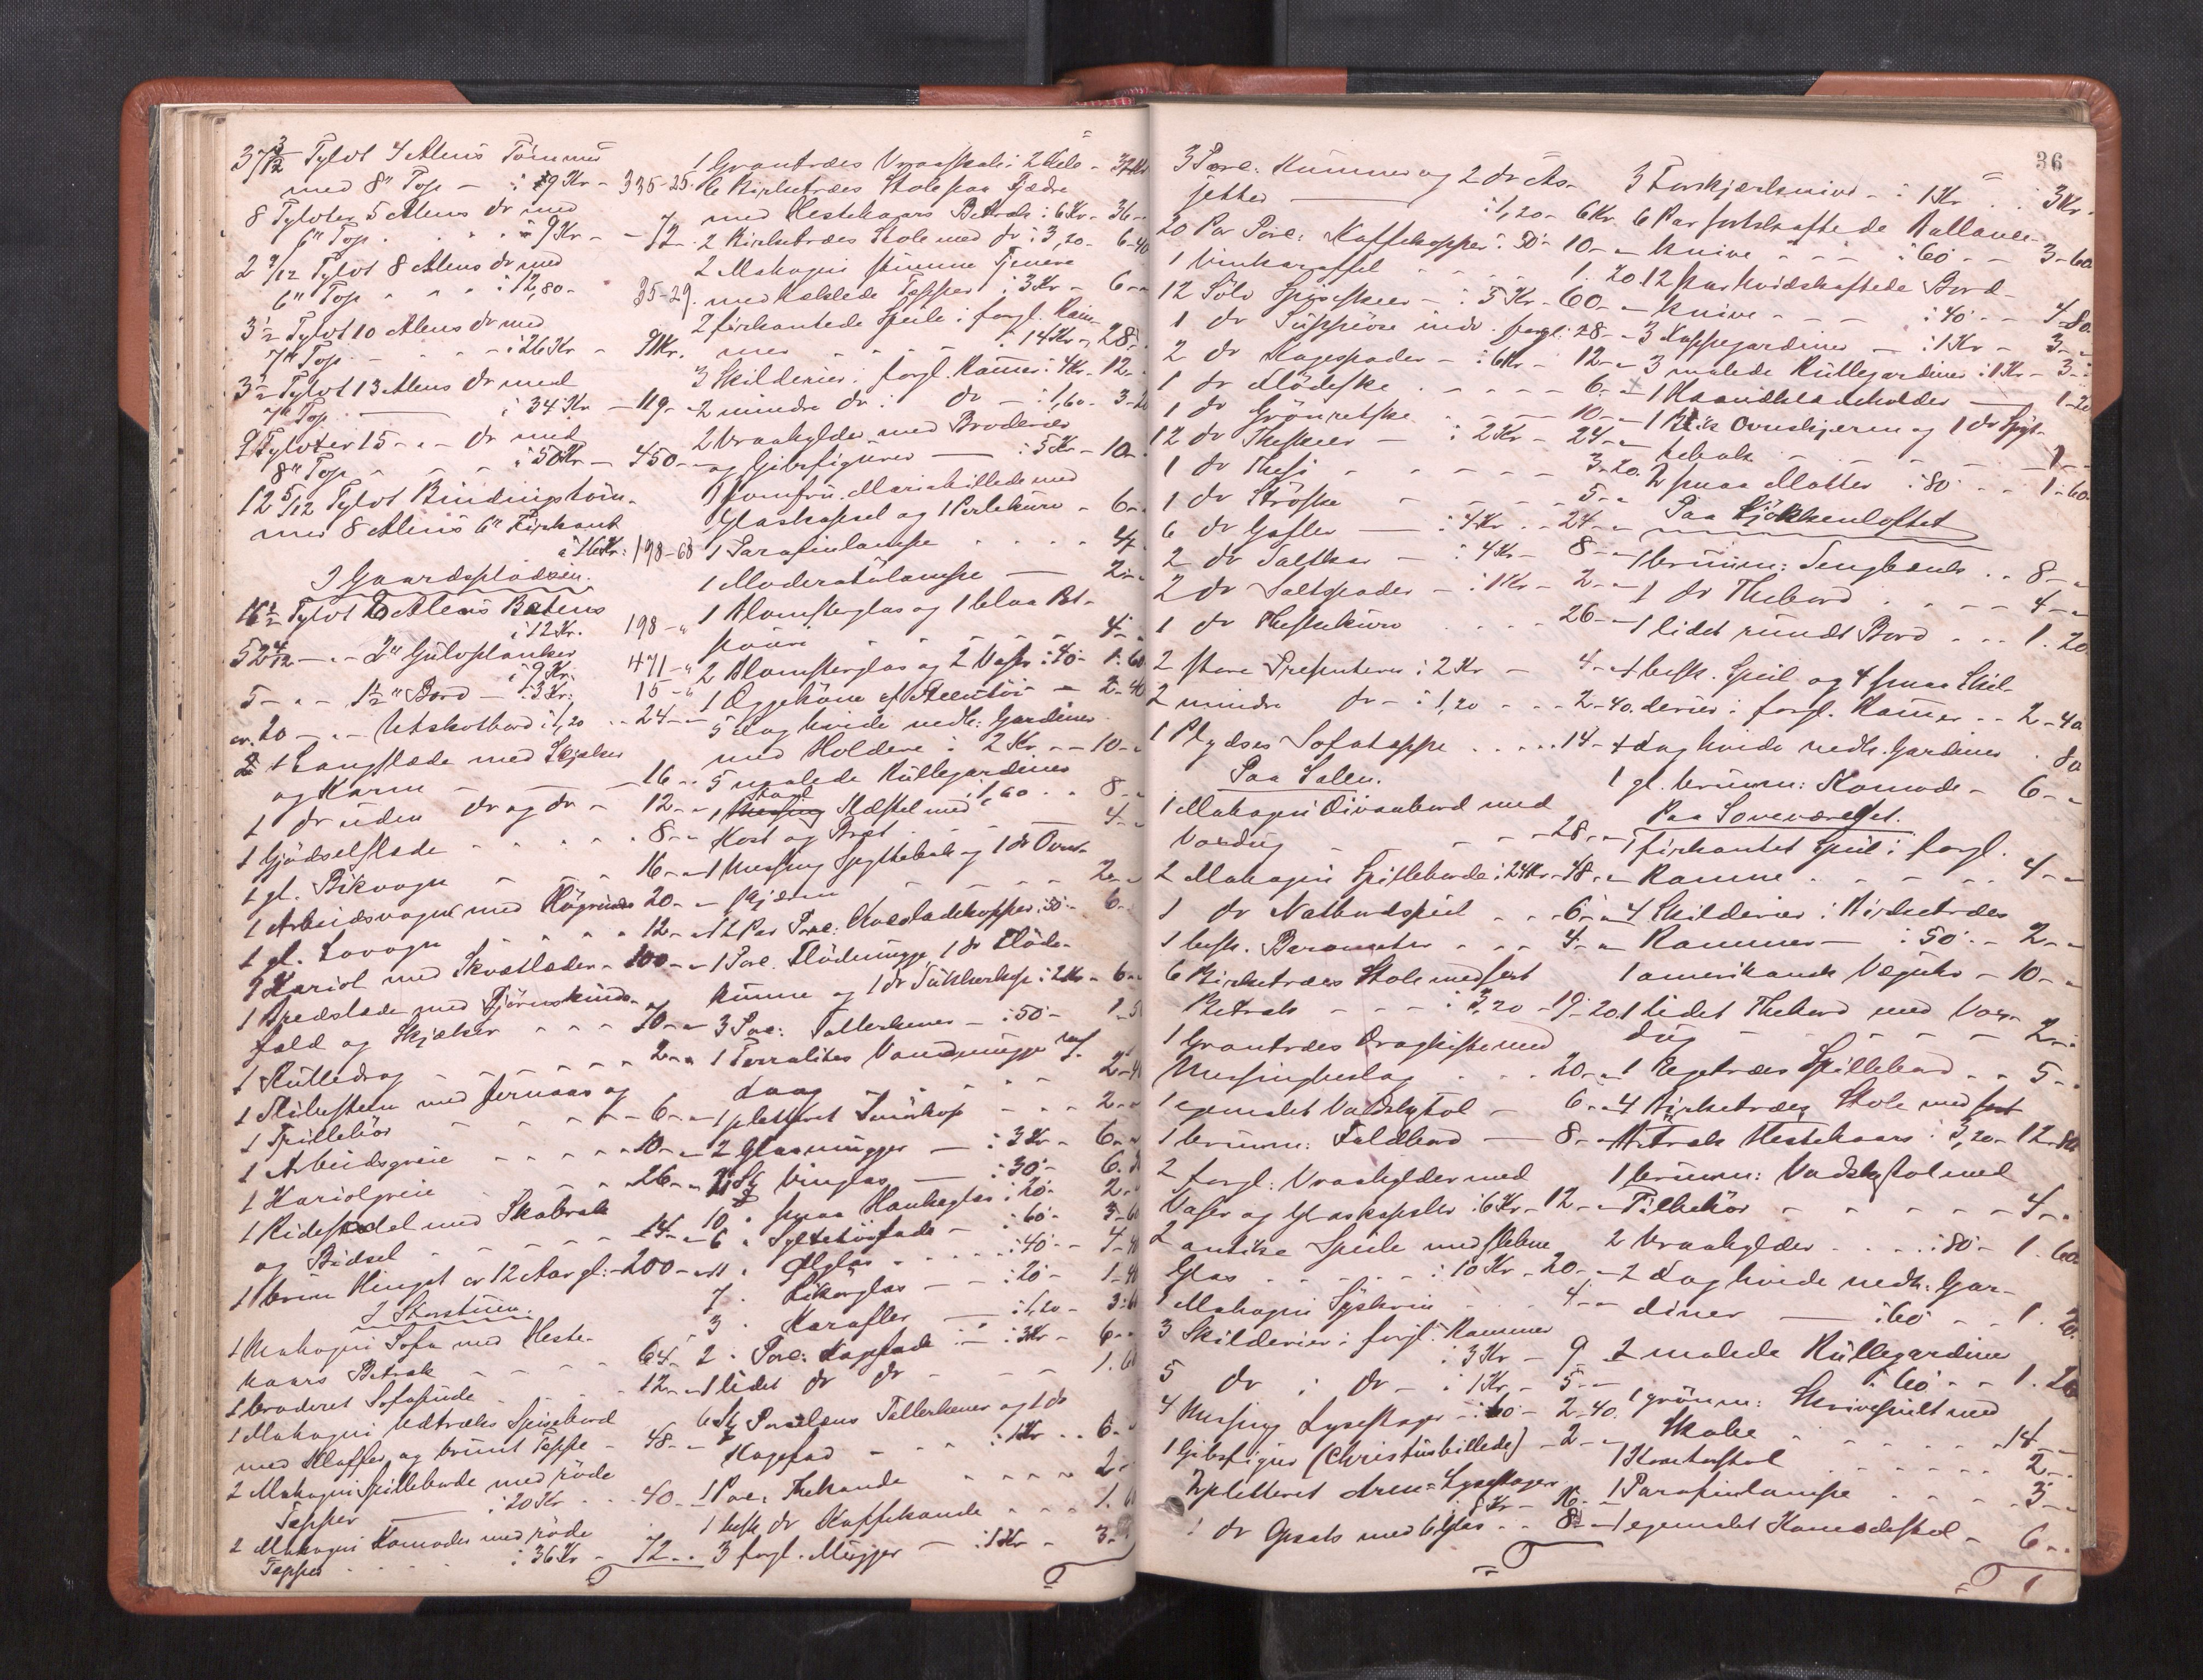 37 3/12 Tylvt 4 Alens Tömmer
med 8" Top — à 9 Kr — 335-25.
8 Tylvter 5 Alens do med
6" Top . . . . à 9 Kr — 72 -
2 9/12 Tylvt 8 Alens do med
6" Top . . . à 12,80 - 35-29.
3½ Tylvt 10 Alens do med
7" Top - - - à 26 Kr - 91 Kr.
3½ Tylvt 13 Alens do med
7" Top. — à 34 Kr — 119 -
9 Tylvter 15 - „ - do med
8" Top - - - à 50 Kr — 450 -
12 5/12 Tylvt Bindingstöm-
mer 8 Alens 6" Firkant
à 16 Kr: 198-68
I Gaardspladsen.
16½ Tylvt Alens
à 12 Kr. 198 - „
52 4/12 - „ - 2" Gulvplanker
à 9 Kr. 471 - „
5 - „ - 1½" Bord - à 3 Kr: 15 - „
cr. 20 - „ - Utskotbord à 1,20 . . 24 - „
1 Langslæde med Skjæker
og Karm - - 16 - „
1 do uden do og do - 12 - „
1 Gjödselslæde . . . . 8 - „
1 gl. Vogn - - 16 - „
1 Arbeidsvogn med 20 - „
1 gl. - - - 12 - „
1 Kariol med Skvætlæder - 100 - „
1 Bredslæde med Björnskinds-
fæld og Skjæker - - - 70 - „
1 Rulledrag - - - - - 2 - „
1 Slibesten med Jernaas og
1 Trillebör - - - 6 - „
1 Arbeidsgreie - - - - 10 - „
1 Kariolgreie - - - 26 - „
1 Ridesadel med Skabrak
og Bidsel - - - - - 14 - „
1 brun Hingst cr 12 Aar gl: - 200 - „
I Storstuen.
1 Mahogni Sofa med Heste-
haars Betræk - - - 64 -
1 broderet Sofapude - - 12 - „
1 Mahogni Udtræks Spisebord
med Klaffer og brunt Tæppe - 48 - „
2 Mahogni Spilleborde med röde
Tæpper — à 20 Kr . . 40 -
2 Mahogni Komoder med röde
Tæpper . . . à 36 Kr - 72 - .
1 Grantræs Vraaskab i 2 Dele - 32 Kr
6 Birketræs Stole paa Fjædre
med Hestehaars Betræk à 6 Kr - 36 -
2 Birketræs Stole med do à 3,20 - 6-40
2 Mahogni stumme Tjenere
med hæklede Tæpper à 3 Kr - 6 -
2 firkantede Speile i forgl. Ram-
mer - - - - à 14 Kr - 28 -
3 Skilderier i forgl. Ramer à 4 Kr - 12 -
2 mindre do i do - à 1,60 - 3-20
2 Vraahylder med Broderier
og Gibsfigurer — à 5 Kr - 10 -
1 Jomfru Mariabillede med
Glaskapsel og 1 Perlekurv - 6 -
1 Parafinlampe . . . . 4 -
1 Moderatörlampe — 2 - -
1 Blomsterglas og 1 blaa Pot-
pouri - - - - - 4 -
2 Blomsterglas og 2 Vaser à 40 - 1.60
1 Æggehöne af Steentöi - 2-40
5 Fag hvide nedh: Gardiner
med Holdere à 2 Kr - - 10 - „
5 malede Rullegardiner
à 1,60 . . 8 - „
1 Staal Stativ med
Kost og Bræt . - - - 4 - „
1 Messing Spyttebak og 1 do Ovns-
skjærm - - - - - 2 - „
12 Par Porc: Chocoladekopper à 50 - 6 -
1 Porc. Flödemugge 1 do Flöde-
kumme og 1 do Sukkerkop à 2 Kr - 6 -
3 Porc: Tallerkener - à 50 - 1-50
1 Terralites Vandmugge m/
Laag - - - - - 2-40
1 pletteret Smörkop - - - 2 -
2 Glasmugger — à 3 Kr - 6 -
Stk Vinglas — à 30 - 6.
10 „ smaa Hankeglas à 20 - 2 -
6 „ Syltetöifade — à 60 - 3-60
11 „ Ölglas . . . . à 40 - 4-40
7 . Likörglas - - à 20 - 1-40
3 . Karafler — à 1,20 - 3-60
2 . Porc: Kagefade — à 3 Kr - 6 -
1 lidet do do - - - 1.60
6 Stk Porcelæns Tallerkener og 1 do
Kagefad - - - à 1 Kr . . 6 -
1 Porc. Thekande - - - - 2 -
1 besk. do Kaffekande . . . 1.60
3 forgl. Mugger — à 1 Kr - 3 -
36
3 Porc: Kummer og 2 do As-
jetter — à 1,20 - 6 Kr.
20 Par Porc: Kaffekopper à 50 - 10 - „
1 Vinkaraffel - - - - 1.20
12 Sölv Spiseskeer - à 5 Kr - 60 - „
1 do Suppeöse indv. forgl: 28 - „
2 do Kagespader - à 6 Kr - 12 - „
1 do Flödeske - - - - - 6 - „
1 do Grönretske - - - 10 - „
12 do Theskeer — à 2 Kr - 24 - „
1 do Thesi - - - - - 3-20
1 do Ströske - - - - 5 - „
6 do Gafler - à 4 Kr . - 24 - „
2 do Saltkar - à 4 Kr - 8 - „
2 do Saltspader - à 1 Kr - 2 - „
1 do Theskekurv . . . . 26 - „
2 store Presenterer à 2 Kr - 4 - „
2 mindre do - à 1,20 . . . 2-40.
1 Plydses Sofatæppe . . . . 14 - „
Paa Salen.
1 Mahogni Divanbord med
Voxdug - - - - - 28 - „
2 Mahogni Spilleborde à 24 Kr - 48 - „
1 do Natbordspeil - - 6 - „
1 besk. Barometer - - - 4 - „
6 Birketræs Stole med sort
Betræk - - - à 3,20 - 19-20
1 Grantræs Dragkiste med
Messingbeslag . . . 20 - „
1 egemalet Vadskstol - 6 - „
1 brunm: Foldbord — 8 - „
2 forgl: Vraahylder med
Vaser og Glaskapsler à 6 Kr - 12 - „
2 antike Speile med slebne
Glas - - - - - à 10 Kr - 20 - „
1 Mahogni Syskrin - - 4 - „
3 Skilderier i forgl. Rammer
à 3 Kr - 9
5 do i do - à 1 Kr - 5 - „
4 Messing Lysestager - à 60 - 2-40.
1 Gibsfigur (Christusbillede) - 2 - „
2 pletteret Arm-Lysestager
à 8 Kr - 16 - „
1 do Opsats med 6 Glas . . 8 - „
3 Forskjærkniver - à 1 Kr . . à 3 Kr.
6 Par sortskaftede Ballance-
knive - - - à 60 - - 3-60
12 Par hvidskaftede Bord-
knive - - - à 40 - - 4-80
3 Kappegardiner — à 1 Kr - 3 - „
3 malede Rullegardiner à 1 Kr - 3 - „
1 Haandklædeholder — 1-20
1 Blik Ovnskjærm og 1 do Spyt-
tebak - - - - - 1 - -
2 smaa Matter à 80 - - 1-60
Paa Kjökkenloftet
1 brunm: Sengbænk . . 8 - „
1 do Thebord . . - - - 4 - „
1 lidet rundt Bord . . . 1.20
1 besk. Speil og 4 smaa Skil-
derier i forgl. Ramer . . 2-40
1 Fag hvide nedh. Gardiner . 80
1 gl. brunm: Komode - 6 - „
Paa Soveværelset.
1 firkantet Speil i forgl.
Ramme . - - - - 4 - „
4 Skilderier i Birketræs
Rammer - à 50 - - 2 - „
1 amerikansk Vægjuhr - 10 - „
1 lidet Thebord med Vox-
dug - - - - - 2 - „
1 Egetræs Spillebord . . 5 - .
4 Birketræs Stole med
Betræk Hestehaars à 3,20 - 12-80
1 brunm: Vadskstol med
Tilbehör - - - - - 4 - .
2 Vraahylder . . . à 80 - 1.60
2 Fag hvide nedh: Gar-
diner — à 60 - - 1.20
2 malede Rullegardiner
à 60 - - 1.20
1 grönm: Skrivepult med
Skabe . . . . . . 14 - „
1 Kontorstol . . . . . . 2 - .
1 Parafinlampe . . . . 3 - „
1 egemalet Komodeskab - 6 - .